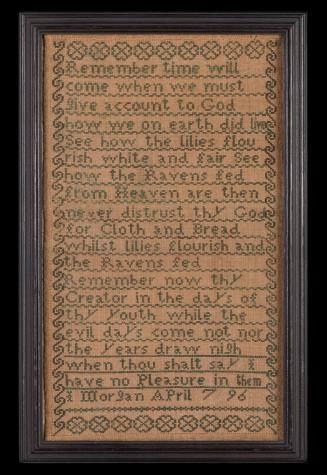 Remember time will
come when we must
give account to God
how we on earth did live
See how the lilies flou
rish white and fair See
how the Ravens fed
from Heaven are then
never distrust thy God
for Cloth and Bread
whilst lilies flourish and
the Ravens fed
Remember now thy
Creator in the days of
thy Youth while the
evil days come not nor
the years draw nigh
when thou shalt say I
have no Pleasure in them
I Morgan April 7 96